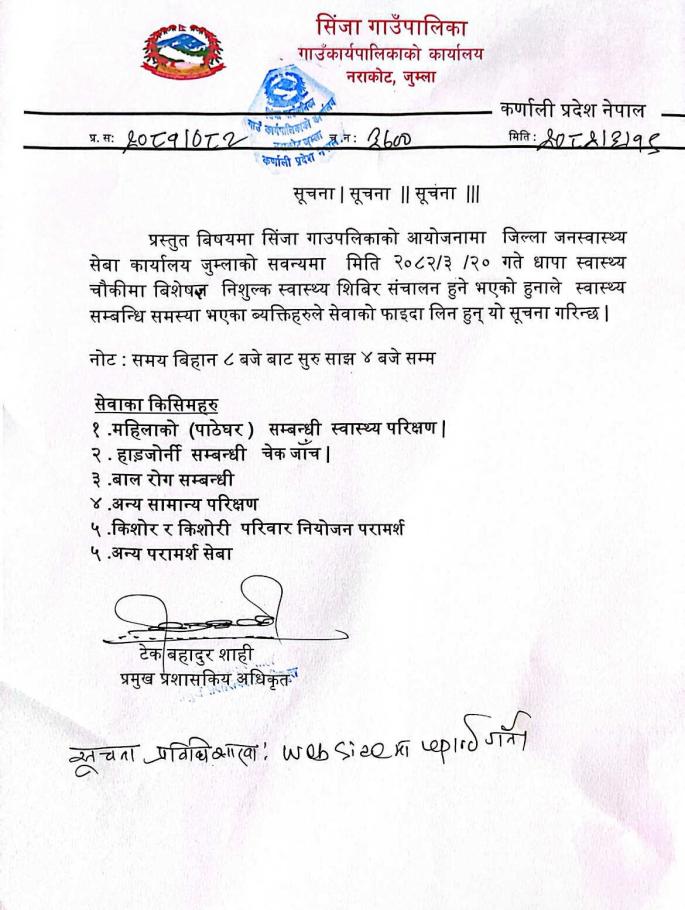 सिंजा गाउँपालिका
गाउँकार्यपालिकाको कार्यालय
नराकोट, जुम्ला
कर्णाली प्रदेश नेपाल
प्र.स: २०८१/०८२ च.न: ३६०० मिति: २०८२/३/१९
गाउँ कार्यपालिकाको कार्यालय
कर्णाली प्रदेश
सूचना | सूचना || सूचना |||
प्रस्तुत बिषयमा सिंजा गाउपलिकाको आयोजनामा जिल्ला जनस्वास्थ्य
सेबा कार्यालय जुम्लाको सवन्यमा मिति २०८२/३ /२० गते धापा स्वास्थ्य
चौकीमा बिशेषज्ञ निशुल्क स्वास्थ्य शिबिर संचालन हुने भएको हुनाले स्वास्थ्य
सम्बन्धि समस्या भएका ब्यक्तिहरुले सेवाको फाइदा लिन हुन् यो सूचना गरिन्छ |
नोट : समय बिहान ८ बजे बाट सुरु साझ ४ बजे सम्म
सेवाका किसिमहरु
१ .महिलाको (पाठेघर ) सम्बन्धी स्वास्थ्य परिक्षण |
२ . हाडजोर्नी सम्बन्धी चेक जाँच |
३ .बाल रोग सम्बन्धी
४ .अन्य सामान्य परिक्षण
५ .किशोर र किशोरी परिवार नियोजन परामर्श
५ .अन्य परामर्श सेबा
टेक बहादुर शाही
प्रमुख प्रशासकिय अधिकृत
सूचना प्रविधि शाखा: web site मा गर्ने